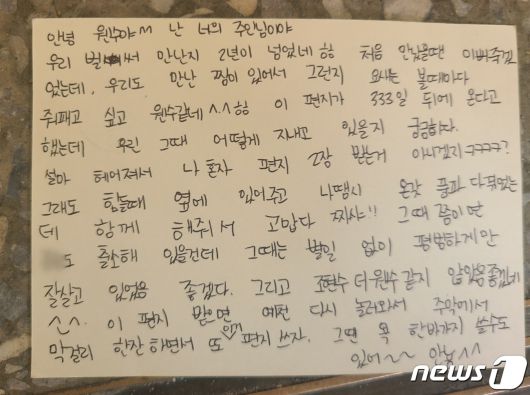 안녕 원수야^^ 난 너의 주인님이야
우리 벌써 만난지 2년이 넘었네 ㅎㅎ 처음 만났을땐 이뻐죽겠
었는데, 우리도 만난 짬이 있어서 그런지 요새는 볼때마다
줘패고 싶고 원수같네^^ㅎㅎ 이 편지가 333일 뒤에 온다고
했는데 우린 그때 어떻게 지내고 있을지 궁금하다.
설마 헤어져서 나 혼자 편지 2장 받는거 아니겠지ㅋㅋㅋㅋ?
그래도 힘들때 옆에 있어주고 나땜시 온갖 풍파 다 겪었는
데 함께 해줘서 고맙다 짜샤!! 그때 쯤이면
도 출소해 있을건데 그때는 별일 없이 평범하게만
잘살고 있었음 좋겠다. 그리고 조현수 더 원수같지 않았음 좋겠네
^^. 이 편지 받으면 예전 다시 놀러와서 주막에서
막걸리 한잔 하면서 또 웃기 편지 쓰자. 그땐 욕 한바가지 쓸수도
있어~~ 안뇽^^
news1